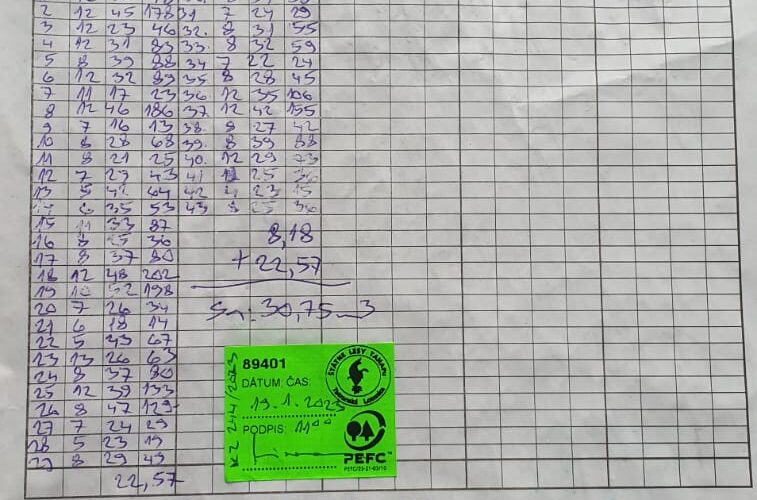 2 12 45 178 31 7 24 29
3 12 23 46 32. 8 31 55
4 12 31 83 33. 8 32 59
5 8 39 88 34 7 22 24
6 12 32 89 35 8 28 45
7 11 17 23 36 12 35 106
8 12 46 186 37. 12 42 155
9 7 16 13 38. 8 27 42
10 8 28 68 39. 8 39 88
11 8 21 25 40. 12 29 73
12 7 29 43 41 25
13 5 42 64 42 23 15
14 6 35 53 43 8 25 36
15 11 33 87
16 8 25 36 8,18
17 8 37 80 + 22,57
18 12 48 202
19 10 52 198
20 7 26 34 30,75 m3
21 6 18 14
22 5 43 67
23 13 26 63
24 8 37 80
25 12 39 133
26 8 47 129
27 7 24 29
28 5 23 19
29 8 29 49
22,57
89401
ŠTÁTNE LESY TANAPU
DÁTUM: ČAS:
19.1.2023
PODPIS: 11°°
PEFC™
KZ 244/2023